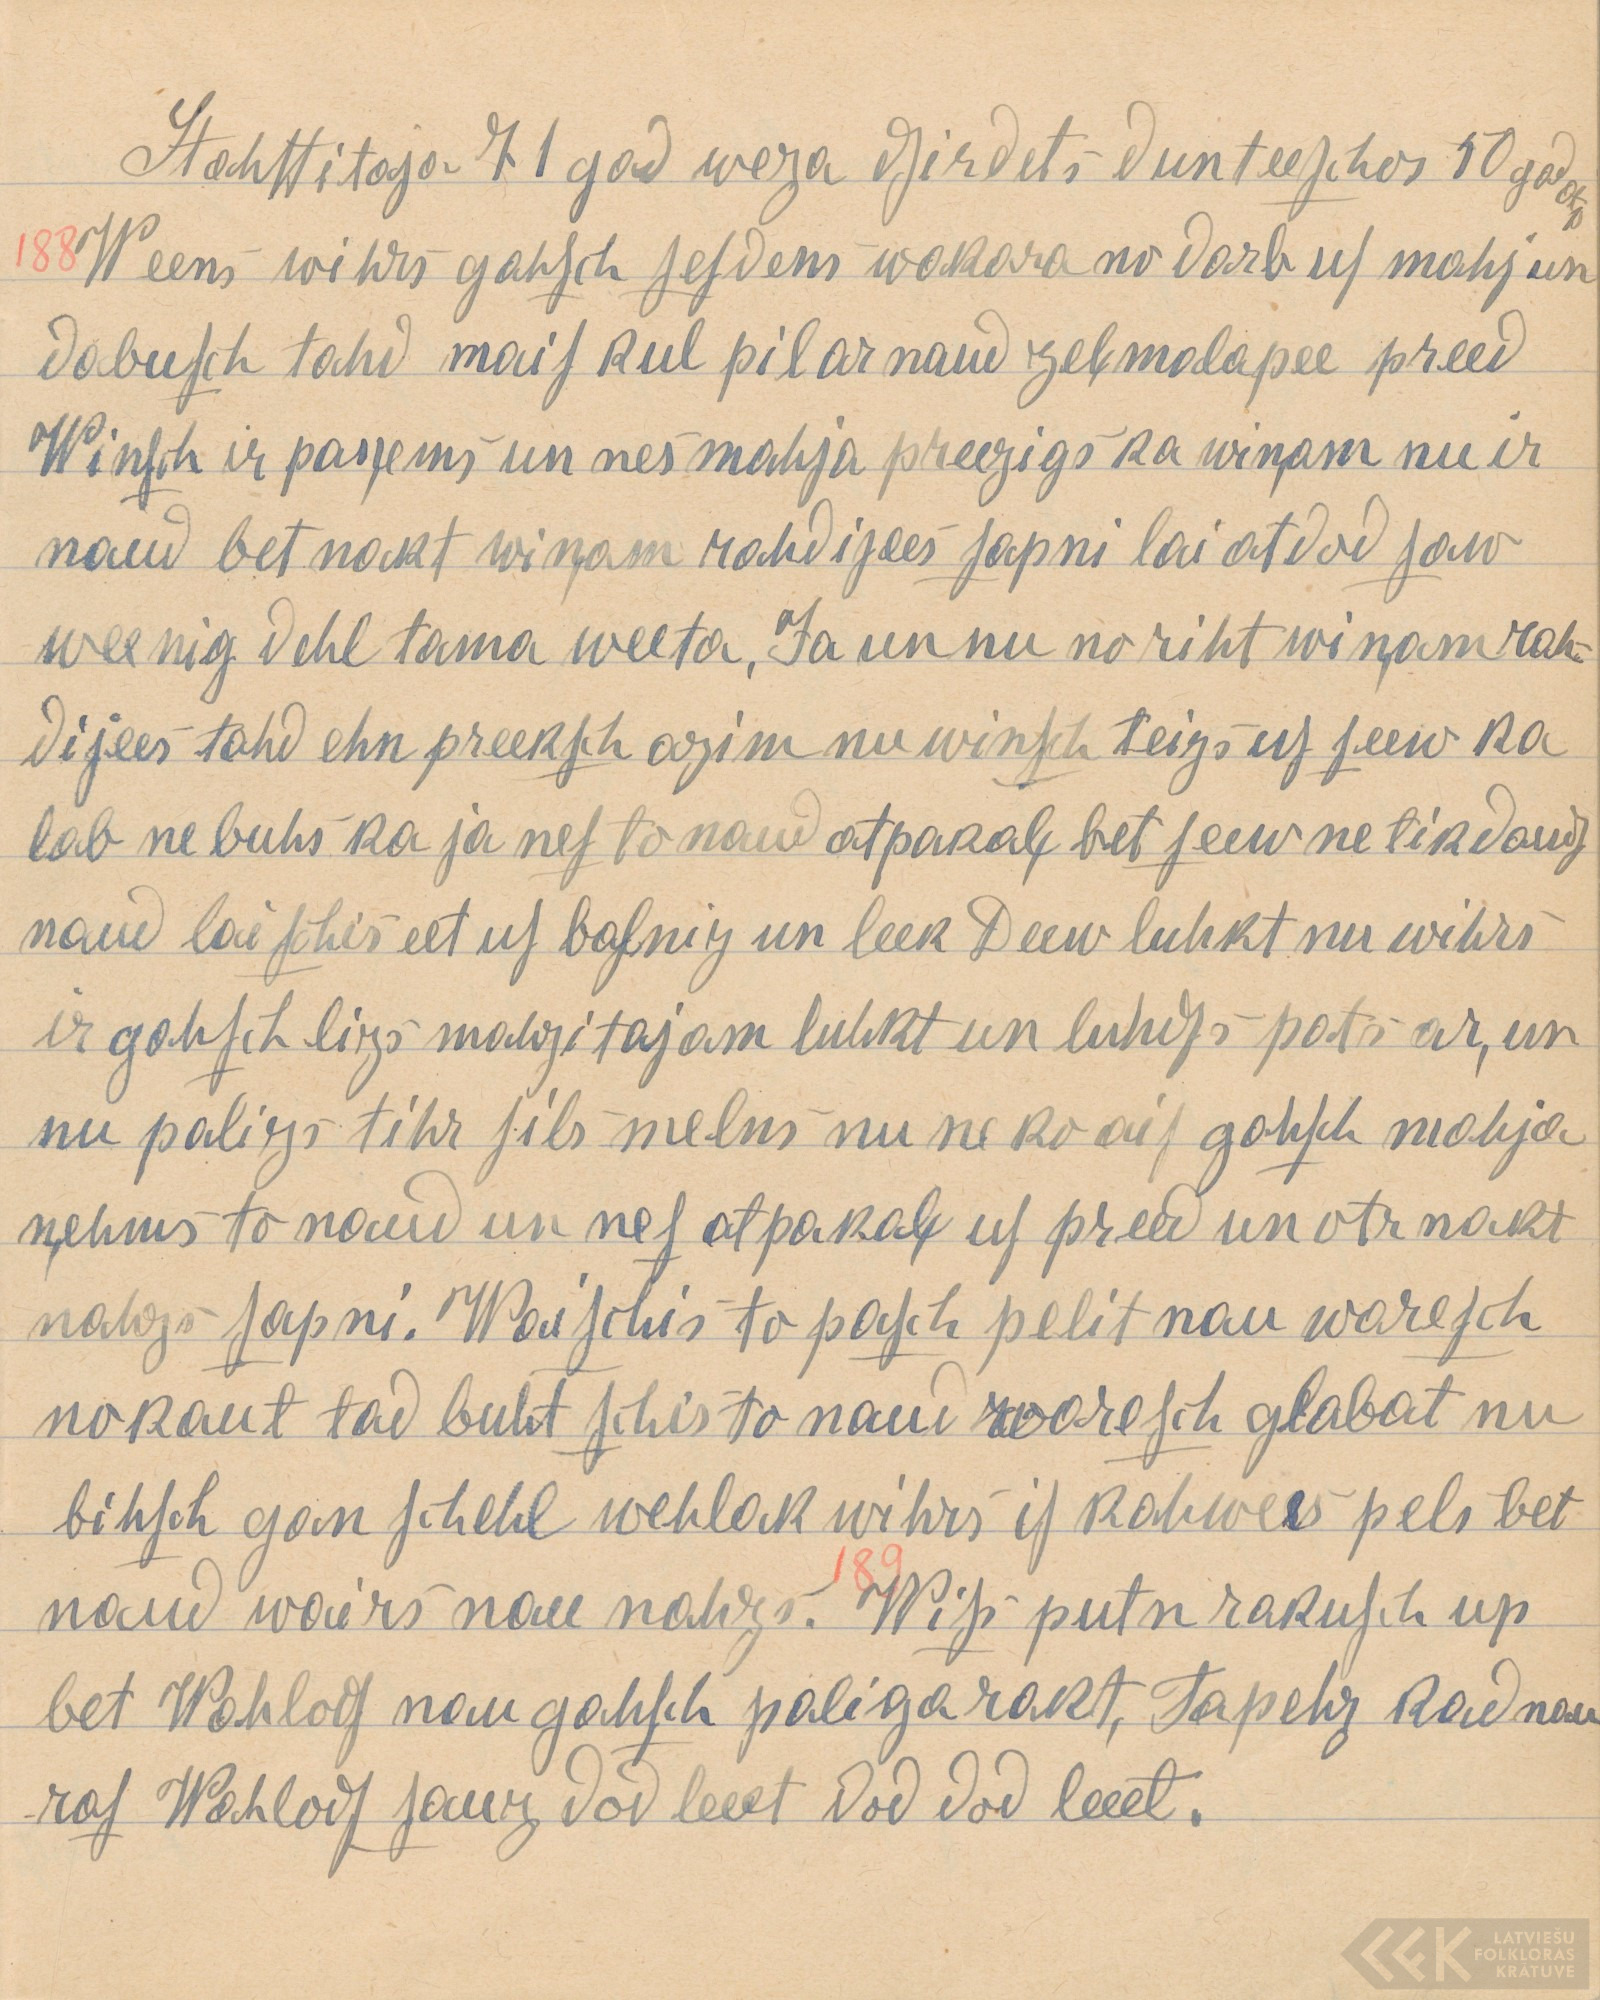 Stahſtitaja 71 gad weza dſirdets dunteeſchos 50 gad atp
188 Weens wihrs gahſch ſeſdens wakara no darb uſ mahj un
dabuſch tahd maiſ kul pil ar naud zeļmalapee preed
Winſch ir paņems un nes mahja preezigs ka wiņam nu ir
naud bet nakt wiņam rahdijees ſapni lai atdod ſaw
weenig dehl tama weeta, Ja un nu no riht wiņam rah-
dijees tahd ehn preekſch azim nu winſch teizs uſ ſeew ka
lab nebuhs ka ja neſ to naud atpakaļ bet ſeew ne tik daudſ
naud lai ſchis eet uſ baſniz un leek Deew luhkt nu wihrs
ir gahſch lizs mahzitajam luhkt un luhdſs pats ar, un
nu palizs tihr ſils melns nu ne ko aiſ gahſch mahja
ņehms to naud un neſ atpakaļ uſ preed un otr nakt
nahzs ſapni. Wai ſchis to paſch pelit nau wareſch
nokaut tad buht ſchis to naud wareſch glabat nu
bihſch gan ſchehl wehlak wihrs iſ kahwes pels bet
naud wairs nau nahzs. 189 Wiſs putn rakuſch up
bet Wahlodſ nau gahſch paliga rakt, Tapehz kad nau
raſ Wahlodſ ſauz dod leeet dod dod leeet.
LATVIEŠU
FOLKLORAS
KRĀTUVE